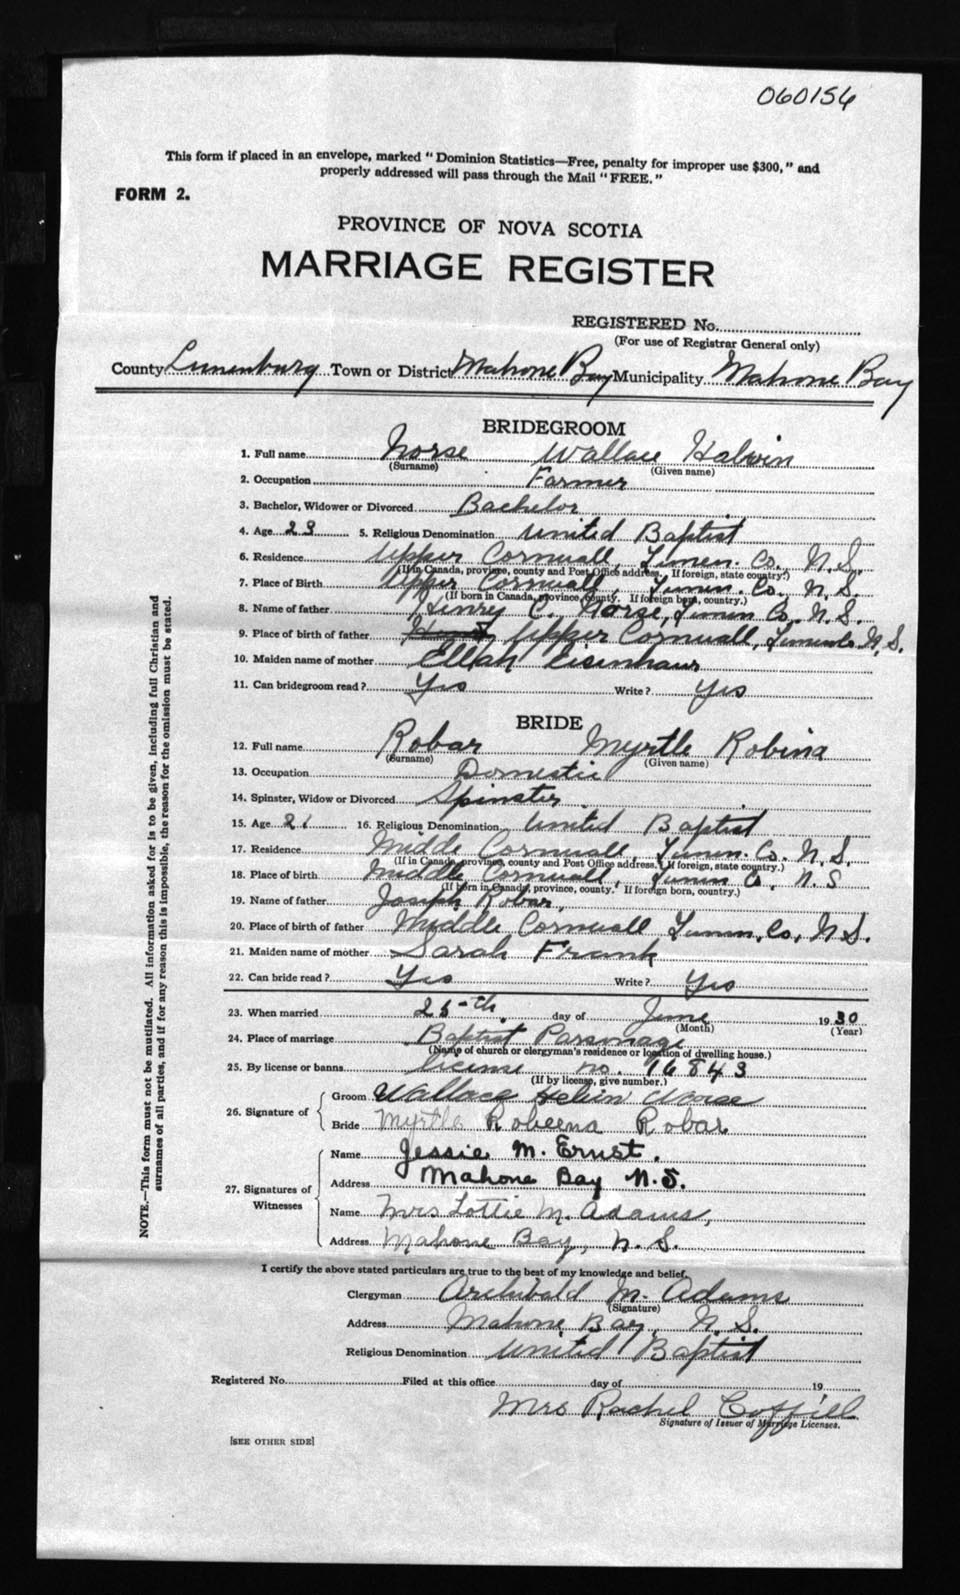 060156
This form if placed in an envelope, marked "Dominion Statistics—Free, penalty for improper use $300," and
properly addressed will pass through the Mail "FREE."
FORM 2.
PROVINCE OF NOVA SCOTIA
MARRIAGE REGISTER
REGISTERED No.
(For use of Registrar General only)
County Lunenburg Town or District Mahone Bay Municipality Mahone Bay
BRIDEGROOM
1. Full name Norse Wallace
(Surname) (Given name)
2. Occupation Farmer
3. Bachelor, Widower or Divorced Bachelor
4. Age 23 5. Religious Denomination United Baptist
6. Residence Upper Cornwall, Lunen. Co. N.S.
(If in Canada, province, county and Post Office address. If foreign, state country.)
7. Place of Birth Upper Cornwall, Lunen. Co. N.S.
(If born in Canada, province, county. If foreign born, country.)
8. Name of father Henry C. Norse, Lunen Co. N.S.
9. Place of birth of father Upper Cornwall, N.S.
10. Maiden name of mother Ellah Eisenhaur
11. Can bridegroom read? Yes Write? Yes
BRIDE
12. Full name Robar Myrtle Robina
(Surname) (Given name)
13. Occupation Domestic
14. Spinster, Widow or Divorced Spinster
15. Age 21 16. Religious Denomination United Baptist
17. Residence Middle Cornwall, Lunen. Co. N.S.
(If in Canada, province, county and Post Office address. If foreign, state country.)
18. Place of birth Middle Cornwall, Lunen Co. N.S
(If born in Canada, province, county. If foreign born, country.)
19. Name of father Joseph Robar,
20. Place of birth of father Middle Cornwall Lunen. Co. N.S.
21. Maiden name of mother Sarah Frank
22. Can bride read? Yes Write? Yes
23. When married 25-th. day of June 1930
(Month) (Year)
24. Place of marriage Baptist Parsonage
(Name of church or clergyman's residence or location of dwelling house.)
25. By license or banns License no. 16843
(If by license, give number.)
26. Signature of
Groom Wallace
Bride Myrtle Robeena Robar
27. Signatures of Witnesses
Name Jessie M. Ernst.
Address Mahone Bay N.S.
Name Mrs Lottie M. Adams,
Address Mahone Bay, N.S.
I certify the above stated particulars are true to the best of my knowledge and belief.
Clergyman Archibald M. Adams
(Signature)
Address Mahone Bay, N.S.
Religious Denomination United Baptist
Registered No. Filed at this office day of 19
Mrs Rachel Coffill
Signature of Issuer of Marriage Licenses.
[SEE OTHER SIDE]
NOTE.—This form must not be mutilated. All information asked for is to be given, including full Christian and
surnames of all parties, and if for any reason this is impossible, the reason for the omission must be stated.